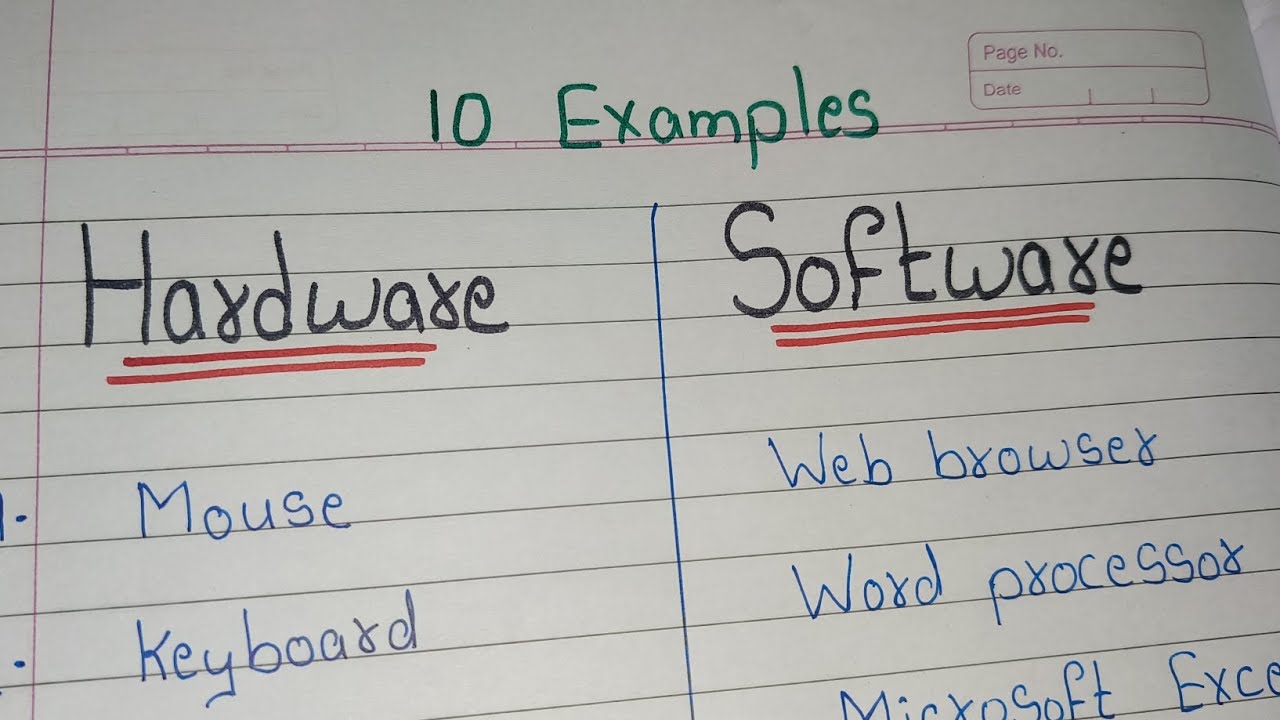 Page No.
Date
10 Examples
Hardware Software
1. Mouse Web browser
Keyboard Word processor
Microsoft Exce